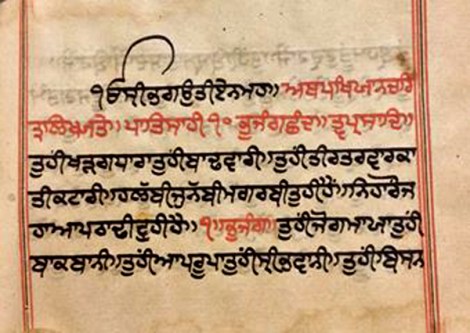 ੴ ਸ੍ਰੀ ਭਗਉਤੀ ਏ ਨਮਹ॥ ਅਥ ਪਖ੍ਯਾਨ ਚਰਿ
ਤ੍ਰ ਲਿਖ੍ਯਤੇ॥ ਪਾਤਿਸਾਹੀ ੧੦ ਭੁਜੰਗ ਛੰਦ॥ ਤ੍ਵਪ੍ਰਸਾਦਿ॥
ਤੁਹੀ ਖੜਗਧਾਰਾ ਤੁਹੀ ਬਾਢਵਾਰੀ॥ ਤੁਹੀ ਤੀਰ ਤਰਵਾਰ ਕਾ
ਤੀ ਕਟਾਰੀ॥ ਹਲੱਬੀ ਜੁਨੱਬੀ ਮਗਰਬੀ ਤੁਹੀ ਹੈਂ॥ ਨਿਹਾਰੌ ਜ
ਹਾ ਆਪ ਠਾਢੀ ਵੁਹੀ ਹੈ॥੧॥ ਭੁਜੰਗ॥ ਤੁਹੀ ਜੋਗ ਮਾਯਾ ਤੁਹੀ
ਬਾਕਬਾਨੀ॥ ਤੁਹੀ ਆਪ ਰੂਪਾ ਤੁਹੀ ਸ੍ਰੀ ਭਵਾਨੀ॥ ਤੁਹੀ ਬਿਸਨ